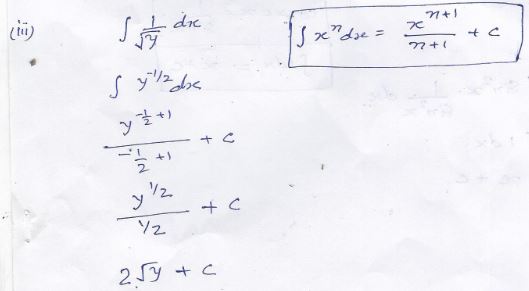 (iii) ∫ 1/√y dx
∫ xⁿ dx = xⁿ⁺¹/n+1 + c
∫ y^-1/2 dx
y^(-1/2 +1)/(-1/2 +1) + c
y^1/2 / 1/2 + c
2√y + c